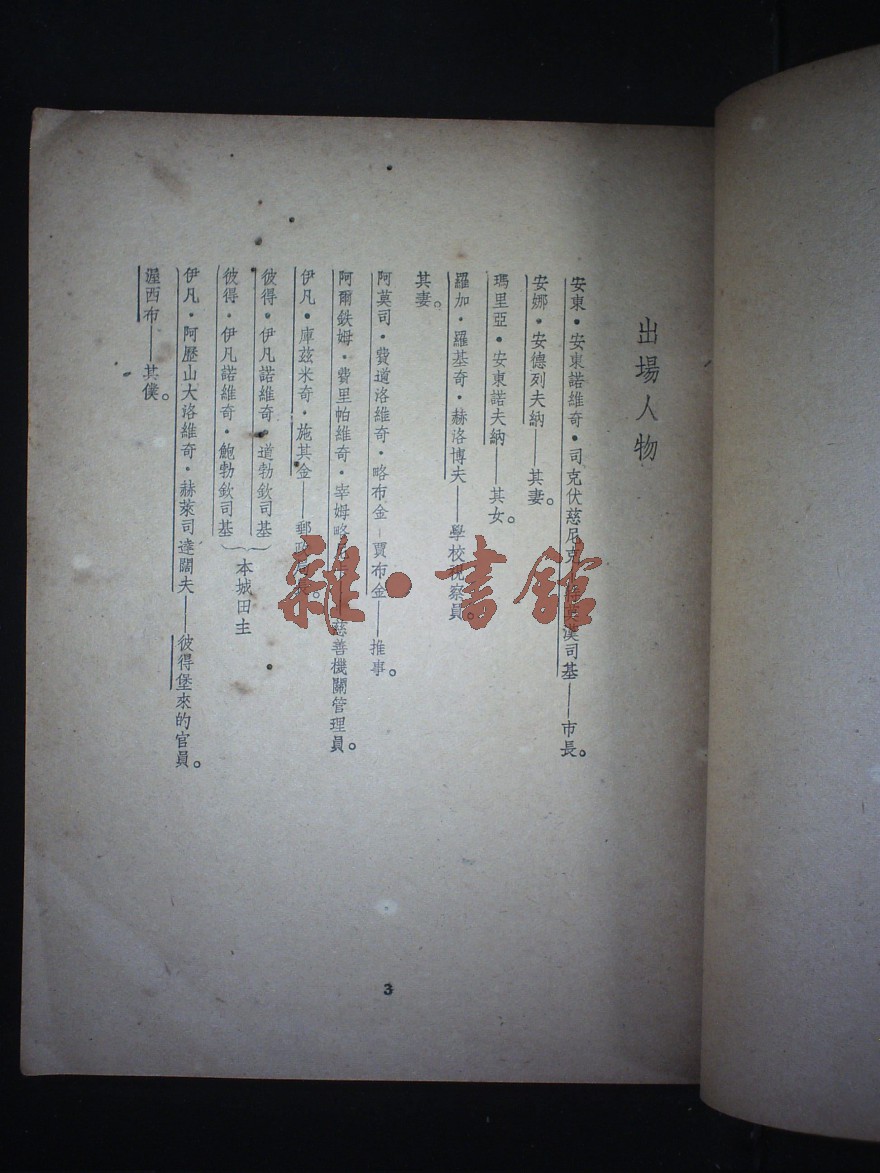 出場人物
安東・安東諾維奇・司克伏慈尼克 漢司基——市長。
安娜・安德列夫納——其妻。
瑪里亞・安東諾夫納——其女。
羅加・羅基奇・赫洛博夫——學校視察員。
其妻。
阿莫司・費道洛維奇・略布金–賈布金——推事。
阿爾鉄姆・費里帕維奇・宰姆略 慈善機關管理員。
伊凡・庫茲米奇・施其金——郵政 。
彼得・伊凡諾維奇・道勃欽司基
彼得・伊凡諾維奇・鮑勃欽司基
本城田主
伊凡・阿歷山大洛維奇・赫萊司達闊夫——彼得堡來的官員。
渥西布——其僕。
3
雜・書館